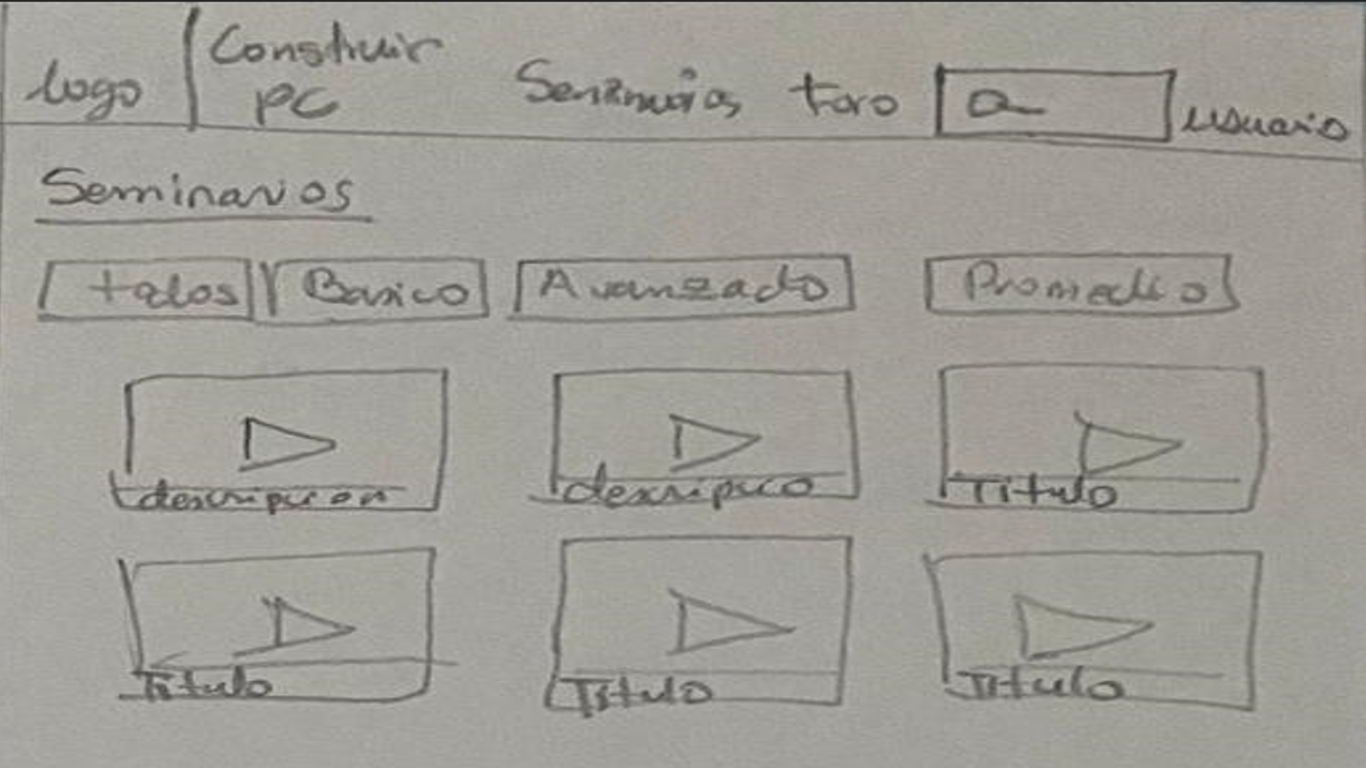 logo
Construir
PC
Seminarios
foro
usuario
Seminarios
todos
Basico
Avanzado
Promedio
descripcion
descripcio
Titulo
Titulo
Titulo
Titulo